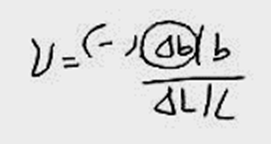 ν = (-) Δb/b
ΔL/L